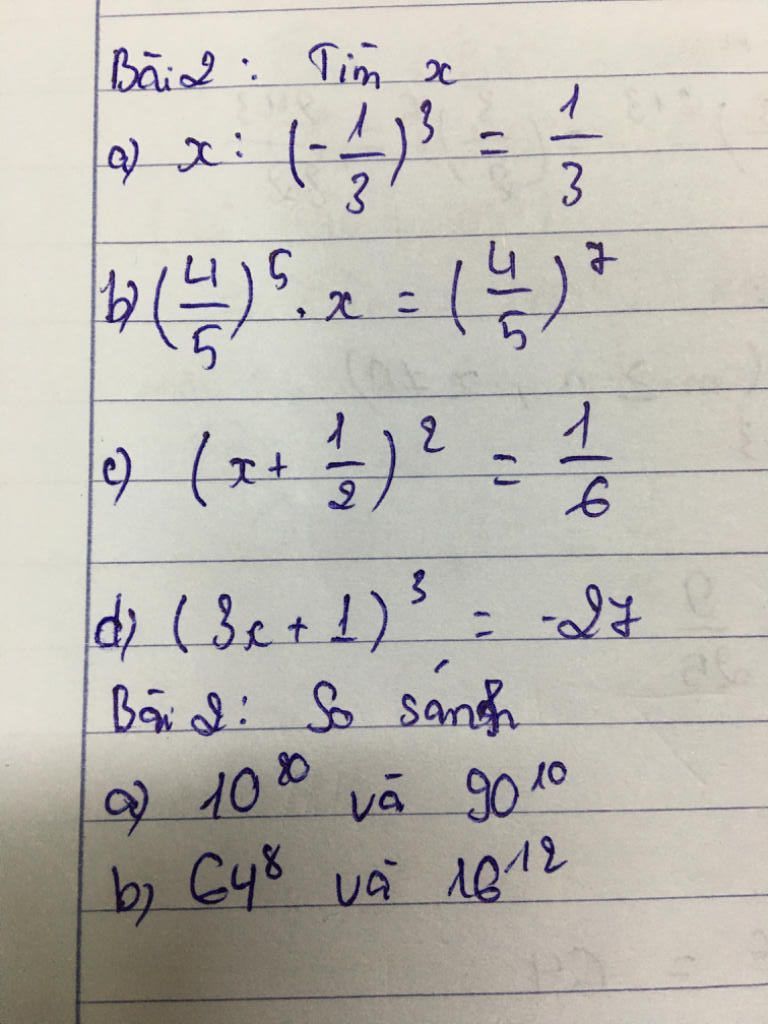 Bài 2: Tìm x
a) x : (-1/3)^3 = 1/3
b) (4/5)^5 . x = (4/5)^7
c) (x + 1/2)^2 = 1/6
d) (3x + 1)^3 = -27
Bài 2: So sánh
a) 10^20 và 90^10
b) 64^8 và 16^12